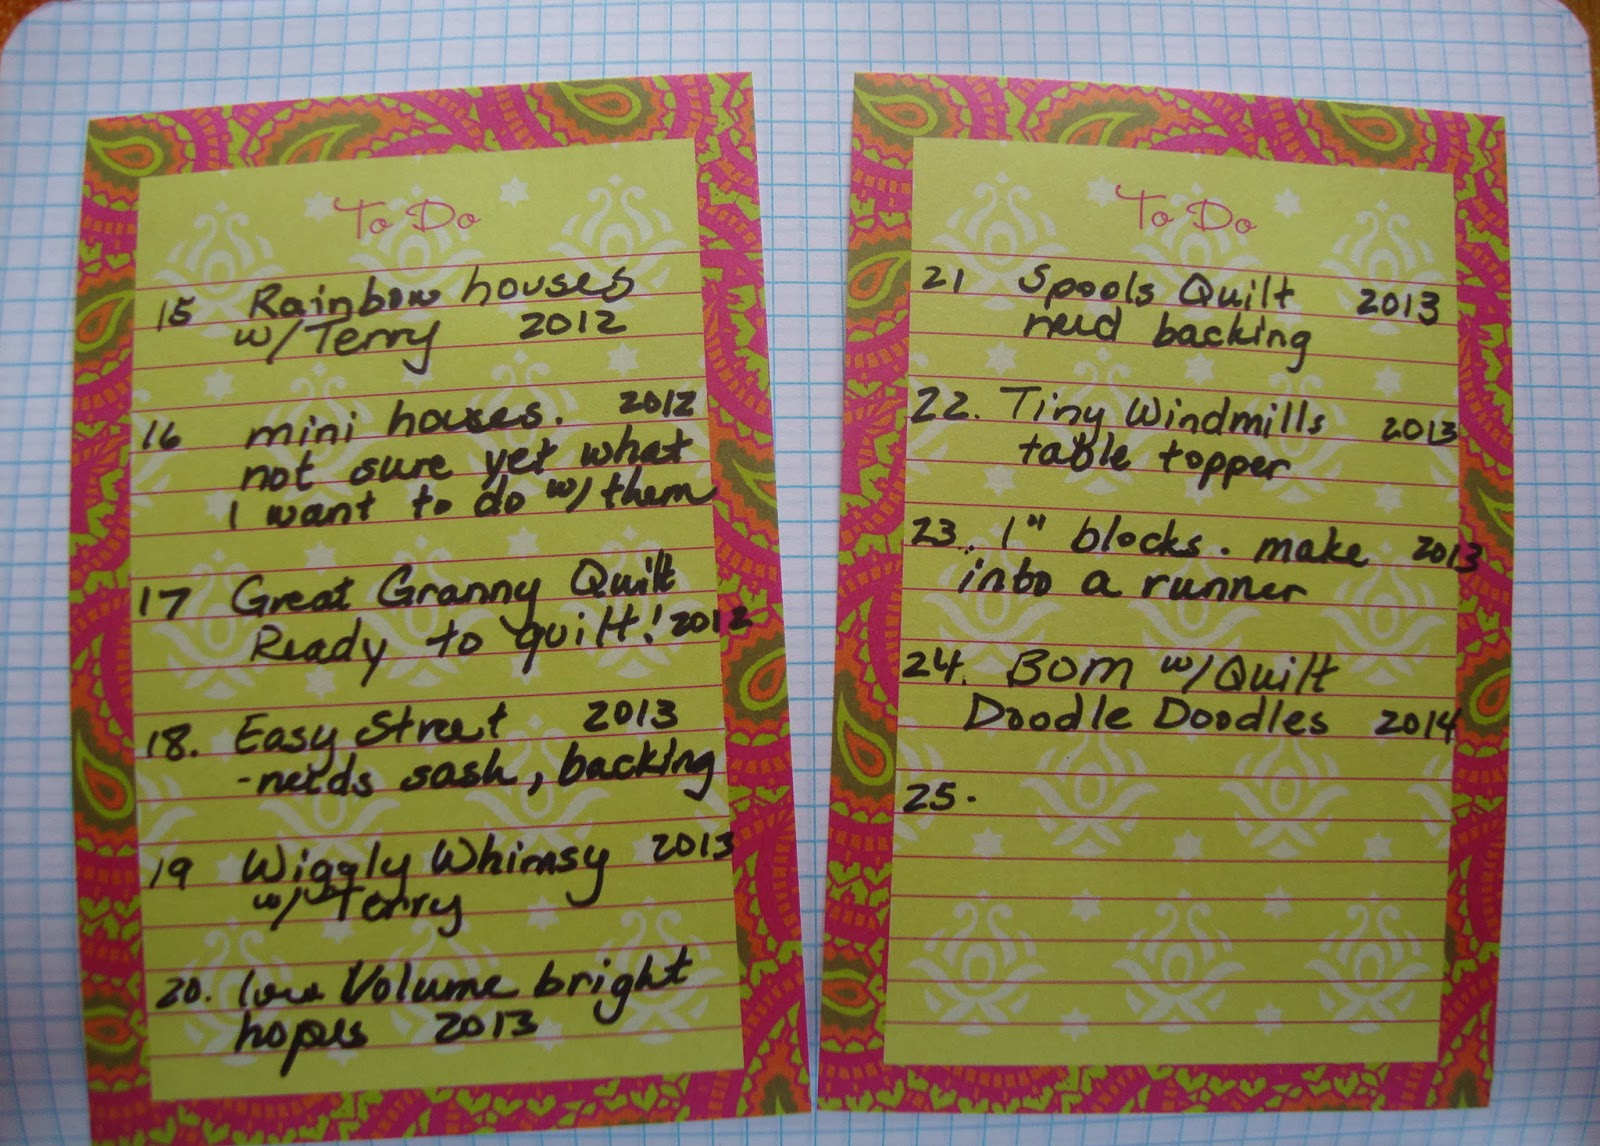 To Do
15 Rainbow houses
w/Terry 2012
16 mini houses. 2012
not sure yet what
I want to do w/ them
17 Great Granny Quilt
Ready to quilt! 2012
18. Easy Street 2013
-needs sash, backing
19 Wiggly Whimsy 2013
w/ Terry
20. low Volume bright
hopes 2013
To Do
21 Spools Quilt 2013
need backing
22. Tiny Windmills 2013
table topper
23. 1" blocks. make 2013
into a runner
24. BOM w/Quilt
Doodle Doodles 2014
25.